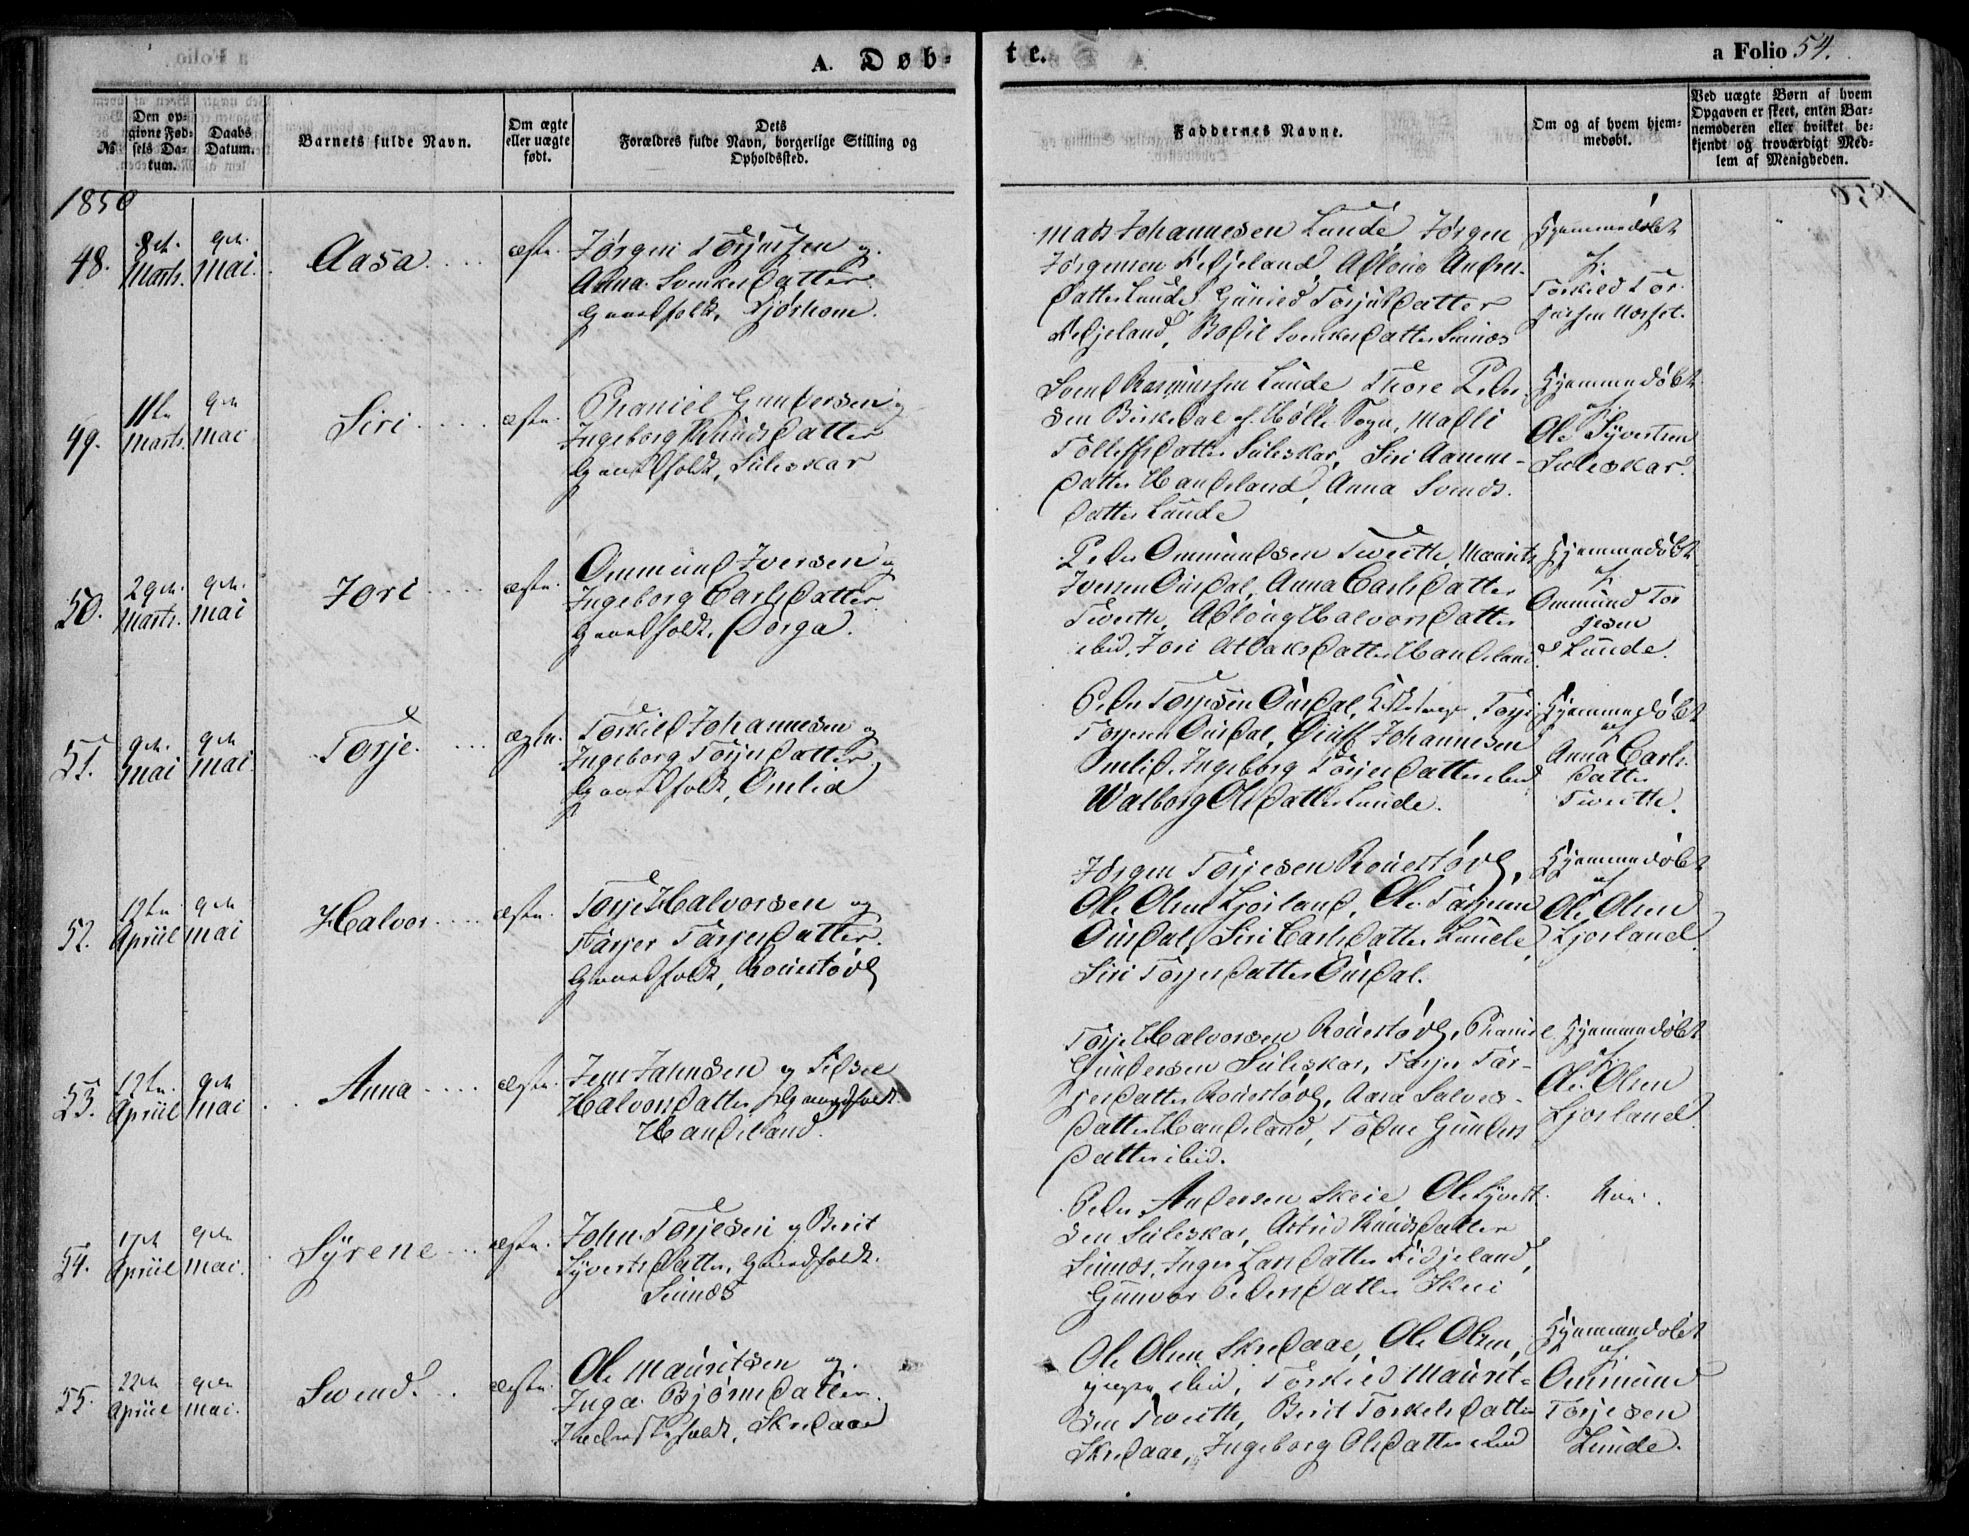 A. Døb-
te.
a Folio 54.
№
Den op-
givne Fød-
sels Da-
tum.
Daabs
Datum.
Barnets fulde Navn.
Om ægte
eller uægte
født.
Dets
Forældres fulde Navn, borgerlige Stilling og
Opholdssted.
Faddernes Navne.
Om og af hvem hjem-
medøbt.
Ved uægte Børn af hvem
Opgaven er skeet, enten Bar-
nemoderen eller hvilket be-
kjendt og troværdigt Med-
lem af Menigheden.
1850
48.
8de
Marts.
9de
Mai.
Aasa
ægte.
Jørgen Torjussen og
Anna Svenkesdatter
Gaardfolk,
Mads Johannesen Lunde, Jørgen
Jørgensen Fidjeland, Adlaug Anders-
datter Lunde, Gunild Torjusdatter
Fidjeland, Bodil Svenkesdatter Sinnes
Hjemmedøbt
af
Torkild Tor-
jussen
49.
11te
Marts.
9de
Mai
Siri
ægte.
Daniel Gundersen og
Ingeborg Knudsdatter
Gaardfolk, Suleskar
Svend Rasmussen Lunde, Thore Peder-
sen Birkedal af Helle Sogn, Malli
Tollefsdatter Suleskar, Siri Aanen-
datter Handeland, Anna Svends-
datter Lunde
Hjemmedøbt
af
Ole Syvertsen
Suleskar.
50.
29de
Marts.
9de
Mai
Jori
ægte.
Ommund Iversen og
Ingeborg Carlsdatter
Gaardfolk,
Peder Ommundsen Tveite, Maurits
Iversen Ousdal, Anna Carlsdatter
Tveite, Adlaug Halvorsdatter
ibid, Jori Atlaksdatter Handeland.
Hjemmedøbt
af
Ommund Tor-
jesen
Lunde.
51.
9de
Mai
9de
Mai.
Torje
ægte.
Torkild Johannesen og
Ingeborg Torjesdatter
Gaardfolk, Omlid
Peder Torjesen Ousdal, Torje
Torjesen Ousdal, Johannesen
Omlid, Ingeborg Torjesdatter ibid
Walborg Olsdatter Lunde.
Hjemmedøbt
af
Anna Carls-
datter
Tveite.
52.
12te
April
9de
Mai
Halvor
ægte.
Torje Halvorsen og
Torjer Torjesdatter
Gaardfolk, Kouestøvl
Jørgen Torjesen Kouestøvl,
Ole Olsen Ljosland, Ole Torjesen
Ousdal, Siri Carlsdatter Lunde,
Siri Torjesdatter Ousdal.
Hjemmedøbt
af
Ole Olsen
Ljosland.
53.
12te
April
9de
Mai
Anna
ægte.
Jens Jahnsen og Sidsel
Halvorsdatter, Gaardfolk
Handeland.
Torje Halvorsen Kouestøvl, Daniel
Gundersen Suleskar, Torjer Tor-
jesdatter Kouestøvl, Aasa Salves-
datter Handeland, Todne Gunders-
datter ibid.
Hjemmedøbt
af
Ole Olsen
Ljosland.
54.
17de
April
9de
Mai.
Syrene
ægte.
John Torjesen og Berit
Syvertsdatter, Gaardfolk
Sinnes
Peder Andersen Skeie, Ole Syvert-
sen Suleskar, Astrid Knudsdatter
Sinnes, Inger Larsdatter Fidjeland,
Gunvor Pedersdatter Skeie
Nei.
55.
22de
April
9de
Mai.
Svend
ægte.
Ole Mauritsen og
Inga Bjørnsdatter
Skredaae
Ole Olsen Skredaae, Ole Olsen
yngre ibid, Torkild Maurit-
sen Tveite, Berit Torkelsdatter
Skredaae, Ingeborg Olsdatter ibid
Hjemmedøbt
af
Ommund
Torjesen
Lunde.